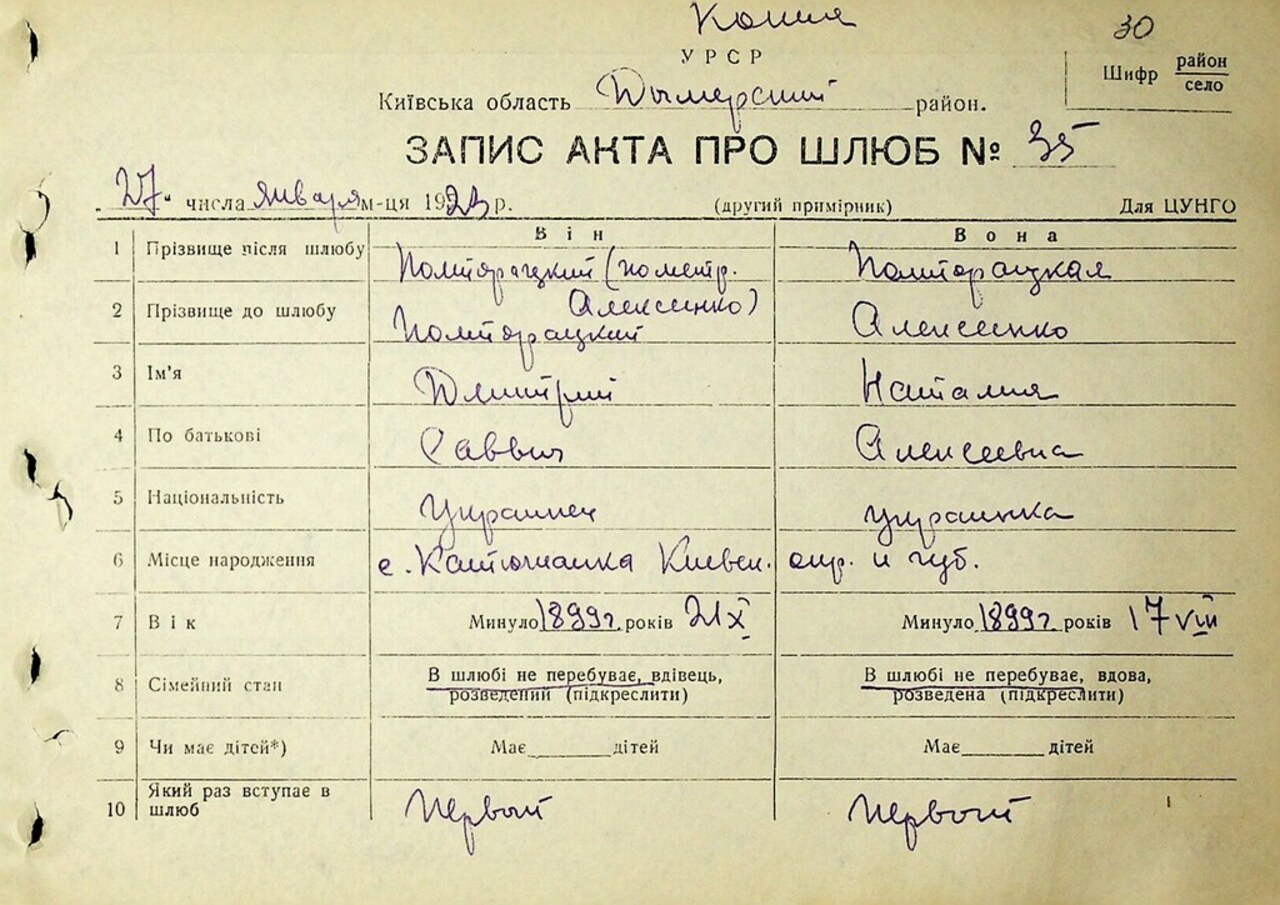 Копия
30
УРСР
Шифр район
село
Київська область Дымерский район.
ЗАПИС АКТА ПРО ШЛЮБ № 35
27 числа января м-ця 1923 р. (другий примірник) Для ЦУНГО
Він Вона
1 Прізвище після шлюбу Полторацкий (по метр. Алексеенко) Полторацкая
2 Прізвище до шлюбу Полторацкий Алексеенко
3 Ім'я Дмитрий Наталия
4 По батькові Саввич Алексеевна
5 Національність Украинец украинка
6 Місце народження с. Катюжанка Киевск. окр. и губ.
7 Вік Минуло 1899 г. років 21 X Минуло 1899 г. років 17 VIII
8 Сімейний стан В шлюбі не перебуває, вдівець, В шлюбі не перебуває, вдова,
розведений (підкреслити) розведена (підкреслити)
9 Чи має дітей*) Має______дітей Має______дітей
10 Який раз вступає в шлюб Первый Первый